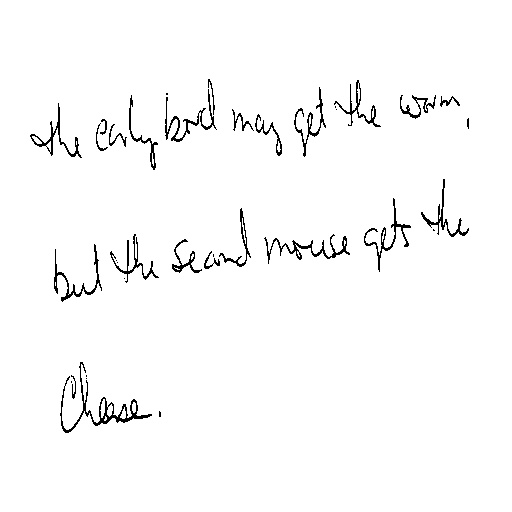 the early bird may get the worm,
but the second mouse gets the
Cheese.